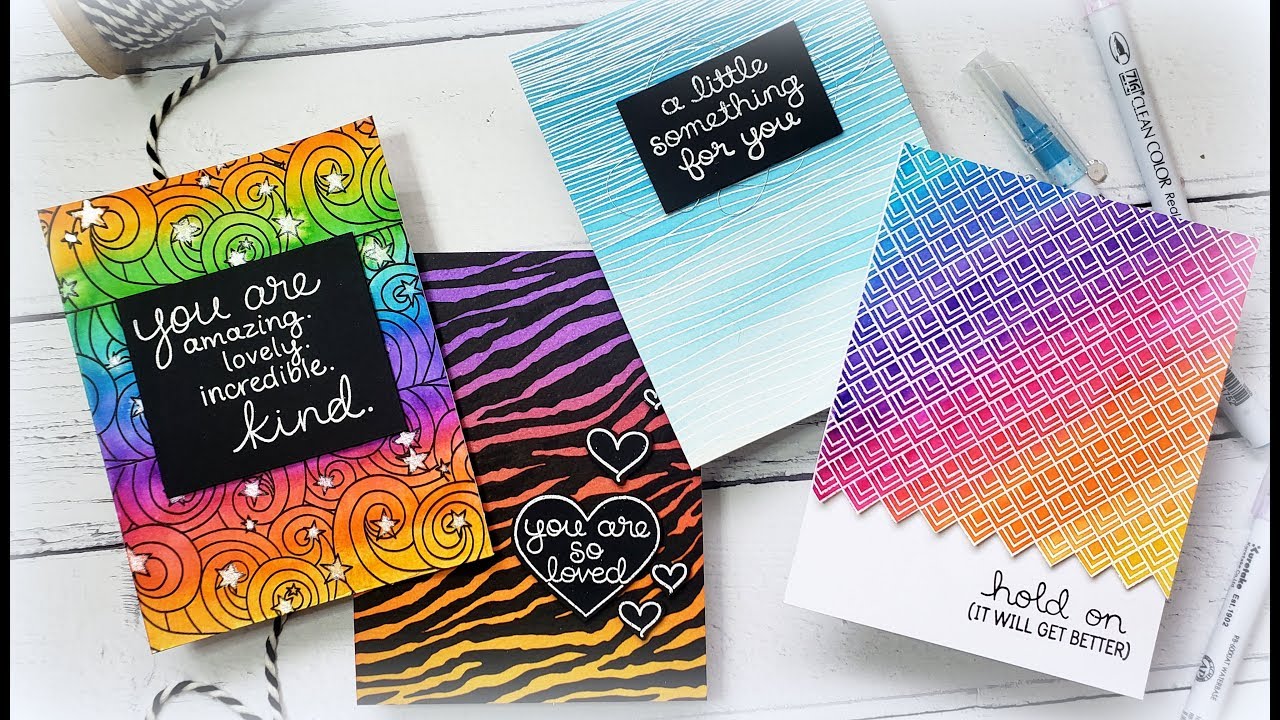 you are
amazing.
lovely.
incredible.
kind.
you are
so
loved
a little
something
for you
hold on
(IT WILL GET BETTER)
ZIG CLEAN COLOR Real
Kuretake Est.1902